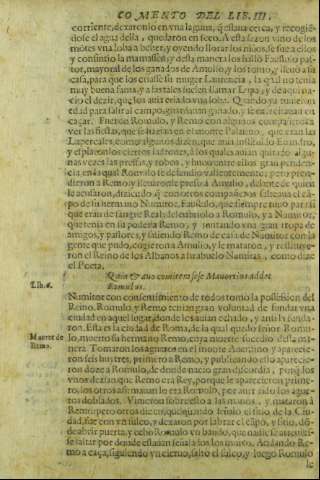 COMENTO DEL LIB. III.
corriente, dexaronlo en vna laguna, q̃ estaua cerca, y recogiẽ-
dose el agua della, quedaron en seco. A esta sazon vino de los
mõtes vna loba a beuer, y oyendo llorar los niños, se fue a ellos
y consintio la mamassen, y desta manera los hallo Faustulo pas-
tor, mayoral de los ganados de Amulio, y los tomo, y lleuo a su
casa, para que los criasse su muger Laurencia, la qual no tenia
muy buena fama, y a las tales suelen llamar Lupas, y de aqui na-
cio el dezir, que los auia criado vna loba. Quando ya tuuieron
edad para salir al campo, guardauan ganado, y se exercitauan en
caçar. Fueron Romulo, y Remo con algunos compañeros a
ver las fiestas, que se hazian en el monte Palatino, que eran las
Lupercales, como algunos dizen, que auia instituido Euandro,
y estauan los ciertos ladrones, a los quales auian quitado algu-
nas vezes las pressas, y robos, y huuo entre ellos gran penden-
cia, en la qual Romulo se defendio valientemente; pero pren-
dieron a Remo y lleuaronle preso a Amulio, delante de quien
le acusaron,
po de su hermano Numitor. Faustulo, que siempre tuuo para si
que eran de sangre Real, descubriolo a Romulo, y a Numitor,
que tenia en su poder a Remo, y juntando vna gran tropa de
amigos, y pastores, y saliendo Remo de casa de Numitor con la
gente que pudo, cogieron a Amulio, y le mataron, y restituye-
ron el Reino de los Albanos a su abuelo Numitor, como dize
el Poeta.
Quin & auo comitem sese Mauortius addet
Lib. 6.
Romulus.
Numitor con consentimiento de todos tomo la possession del
Reino. Romulo y Remo tenian gran voluntad de fundar vna
ciudad en aquel lugar, donde los auian echado, y assi la funda-
ron. Esta es la ciudad de Roma, de la qual quedo señor Romu-
Muerte de
Remo.
lo, muerto su hermano Remo, cuya muerte sucedio desta ma-
nera. Tomaron los agueros en el monte Auentino, y aparecie-
ron seis buitres, primero a Remo, y publicando esto aparecie-
ron doze a Romulo, de donde nacio gran discordia, porq̃ los
vnos dezian que Remo era Rey, porque le aparecieron prime-
ro, los otros afirmauan lo era Romulo, por auer sido los ague-
ros doblados. Vinieron sobre esto a las manos, y mataron a
Remo: pero otros dizen, que quando señalo el sitio de la Ciu-
dad, fue con vn sulco, y dexaron por labrar el espacio, dõ-
de abrir puerta, y echo Romulo vn bando, que nadie se atreuies-
se saltar por donde estauan señalados los muros. Andando Re-
mo a caça, siguiendo vn cieruo, salto el sulco, y luego Romulo
le